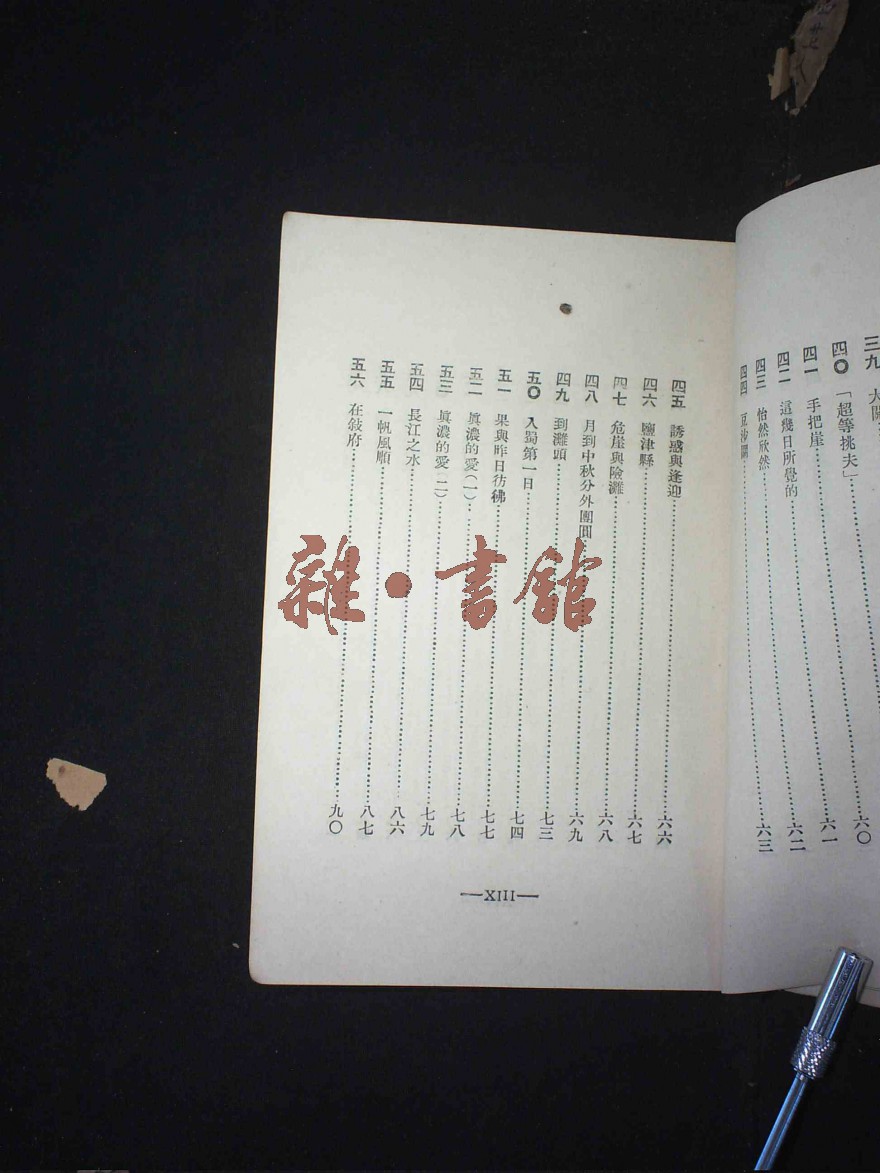 四〇 「超等挑夫」……六〇
四一 手把崖……六一
四二 這幾日所覺的……六二
四三 怡然欣然……六三
四四 豆沙關
四五 誘惑與逢迎……六六
四六 鹽津縣……六七
四七 危崖與險灘……六八
四八 月到中秋分外團圓……六九
四九 到灘頭……七三
五〇 入蜀第一日……七四
五一 果與昨日彷彿……七七
五二 眞濃的愛(一)……七八
五三 眞濃的愛(二)……七九
五四 長江之水……八六
五五 一帆風順……八七
五六 在敍府……九〇
—XIII—
雜·書館